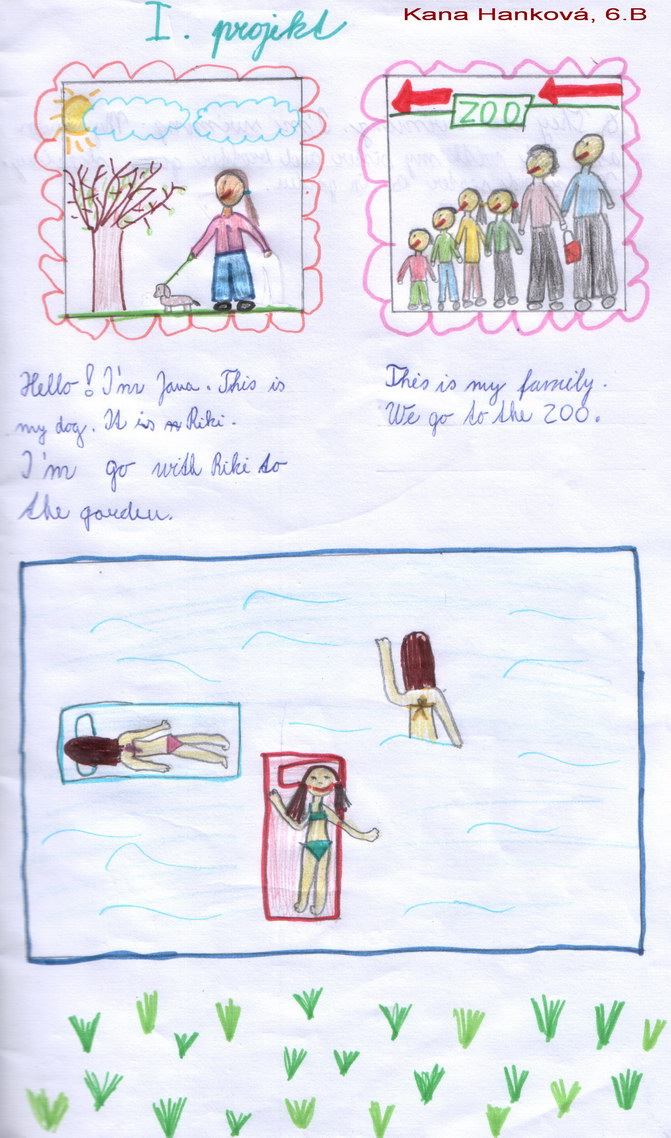 I. projekt
Kana Hanková, 6.B
ZOO
Hello! I'm Jana. This is
my dog. It is Riki.
I'm go with Riki to
the garden.
This is my family.
We go to the ZOO.